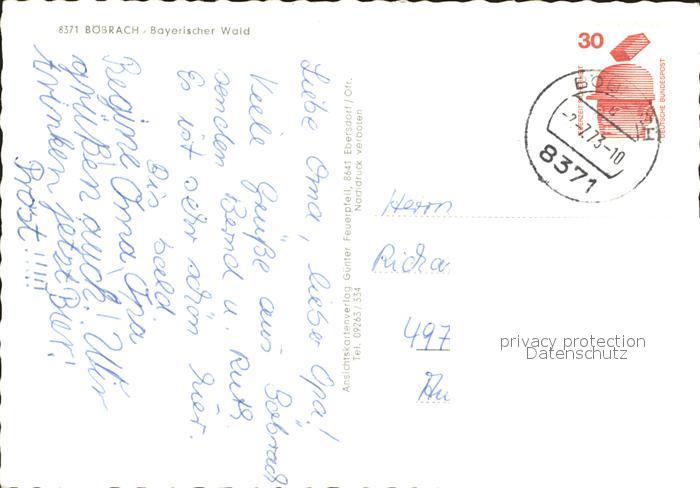 8371 BÖBRACH / Bayerischer Wald
Liebe Oma, lieber Opa!
Viele Grüße aus Böbrach
senden Bernd u. Ruth.
Es ist sehr schön hier.
Bis bald.
Regine Oma Opa
grüßen auch! Wir
trinken jetzt Bier!
Prost!!!!!
Ansichtskartenverlag Günter Feuerpfeil, 8641 Ebersdorf / Ofr.
Tel. 09263 / 334 Nachdruck verboten
30
JEDERZEIT SICHERHEIT
DEUTSCHE BUNDESPOST
-2.-7.73-10
8371
Herrn
Richa
497
Au
privacy protection
Datenschutz